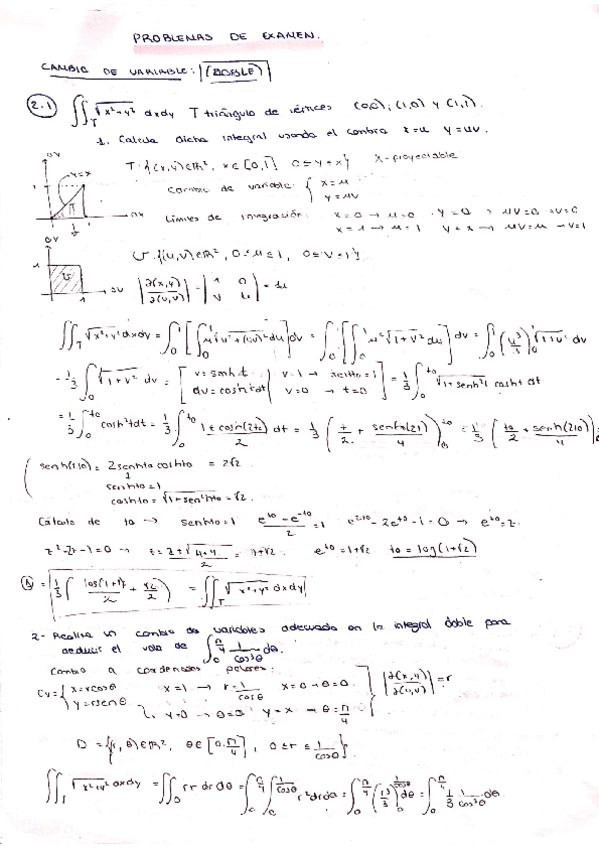 PROBLEMAS DE EXAMEN.
CAMBIO DE VARIABLE: (DOBLE)
2.1 ∬_T √(x²+y²) dxdy T triángulo de vértices (0,0); (1,0) y (1,1).
1. Calcula dicha integral usando el cambio x=u y=uv.
T={(x,y)∈ℝ², x∈[0,1] 0≤y≤x} x-proyectable
Cambio de variable: { x=u
y=uv
Límites de integración: x=0 → u=0 · y=0 → uv=0 → v=0
x=1 → u=1 y=x → uv=u → v=1
y=x
T
U={(u,v)∈ℝ², 0≤u≤1, 0≤v≤1}
U
|∂(x,y)/∂(u,v)| = |1 0; v u| = u
∬_T √(x²+y²) dxdy = ∫₀¹[∫₀¹ u√(u²+(uv)²) du]dv = ∫₀¹[∫₀¹ u²√(1+v²) du] dv = ∫₀¹ (u³/3)₀¹ √(1+v²) dv
= 1/3 ∫₀¹ √(1+v²) dv = [v=senh t v=1 → senh t₀=1; dv=cosh t dt v=0 → t=0] = 1/3 ∫₀^t₀ √(1+senh²t) cosh t dt
= 1/3 ∫₀^t₀ cosh²t dt = 1/3 ∫₀^t₀ (1+cosh(2t))/2 dt = 1/3 (t/2 + senh(2t)/4)₀^t₀ = 1/3 (t₀/2 + senh(2t₀)/4)
senh(2t₀) = 2senh t₀ cosh t₀ = 2√2
senh t₀=1
cosh t₀ = √(1+senh²t₀) = √2.
Cálculo de t₀ → senh t₀=1 (e^t₀ − e^−t₀)/2 = 1 e^2t₀ − 2e^t₀ − 1 = 0 → e^t₀ = z.
z²−2z−1=0 → z = (2±√(4+4))/2 = 1+√2 e^t₀ = 1+√2 t₀ = log(1+√2)
= 1/3 ( log(1+√2)/2 + √2/2 ) = ∬_T √(x²+y²) dxdy
2- Realiza un cambio de variables adecuado en la integral doble para
deducir el valor de ∫₀^π/4 1/cos³θ dθ.
Cambio a coordenadas polares:
CV={ x=rcosθ x=1 → r=1/cosθ x=0 → θ=0 |∂(x,y)/∂(u,v)| = r
y=rsenθ y=0 → θ=0 y=x → θ=π/4
D={(r,θ)∈ℝ², θ∈[0,π/4], 0≤r≤1/cosθ}
∬_T √(x²+y²) dxdy = ∬_D r·r dr dθ = ∫₀^π/4 ∫₀^1/cosθ r² dr dθ = ∫₀^π/4 (r³/3)₀^1/cosθ dθ = ∫₀^π/4 1/3 1/cos³θ dθ